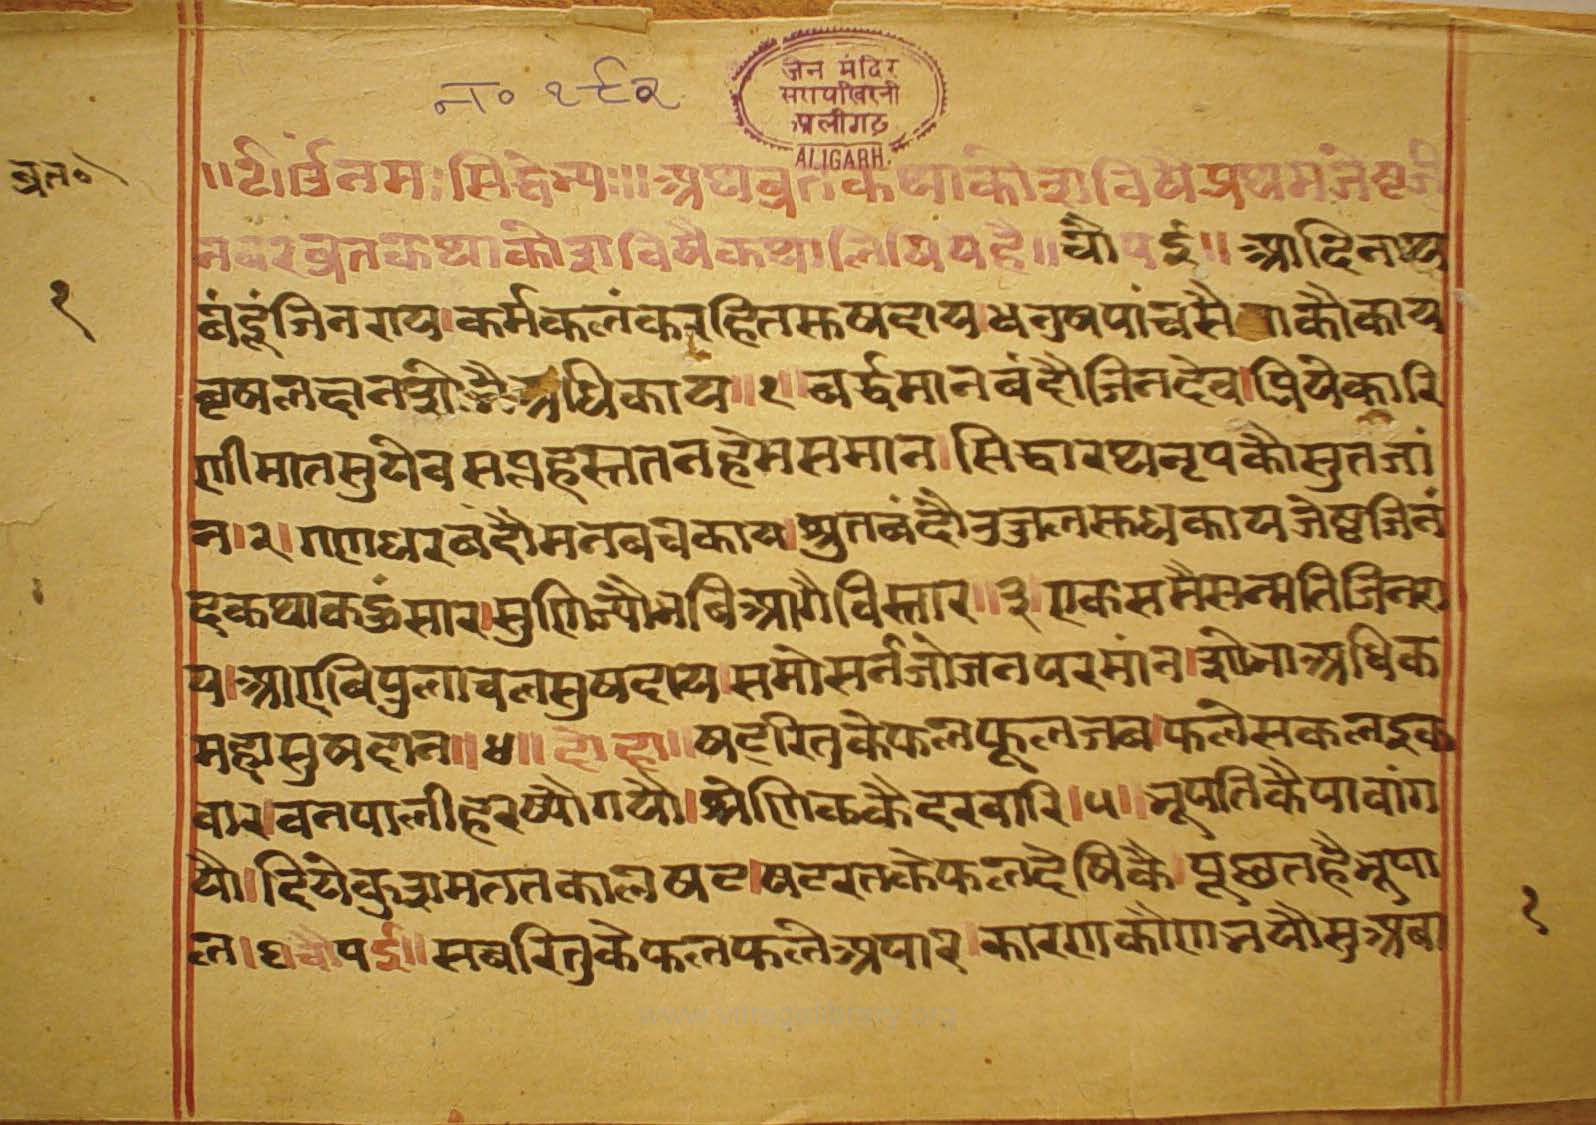 न० १९२
जैन मंदिर
सरायखिरनी
अलीगढ़
ALIGARH.
व्रत०
॥र्द०॥ॐनमःसिद्धेभ्यः॥अथव्रतकथाकोशविषैप्रथमजेष्टजी
नवरव्रतकथाकोशविषैकथालिषियेहै॥चौपई॥आदिनाथ
१
बंदूंजिनराय।कर्मकलंकरहितसुषदाय।धनुषपांचसै ाकौकाय
बृषभलक्षन अधिकाय॥१॥बर्द्धमानबंदौजिनदेव।प्रियेकारि
णीमातसुयेवसप्तहस्ततनहेमसमान।सिद्धारथनृपकौसुतजां
न।२।गणधरबंदौमनबचकाय।श्रुतबंदौउजलसुधकायजेष्टजिनं
दकथाकहुंसार।सुणिज्यौभबिआगैविस्तार॥३।एकसमैसन्मतिजिनरा
य।आएबिपुलाचलसुषदाय।समोसर्नजोजनपरमांन।शोभाअधिक
महासुषदान॥४॥दोहा॥षटरितुकेफलफूलजब।फलेसकलइक
बार।वनपालीहरष्यौगयौ।श्रेणिककैदरबारि।५॥भूपतिकैपाबांग
यौ।दियेकुशमततकालषट।षटरतकेफलदेषिकै।पूंछतहैभूपा
ल।६।चौपई॥सबरितुकेफलफलेअपार।कारणकौणभयौसुअबा
१
www.vitragelibrary.org